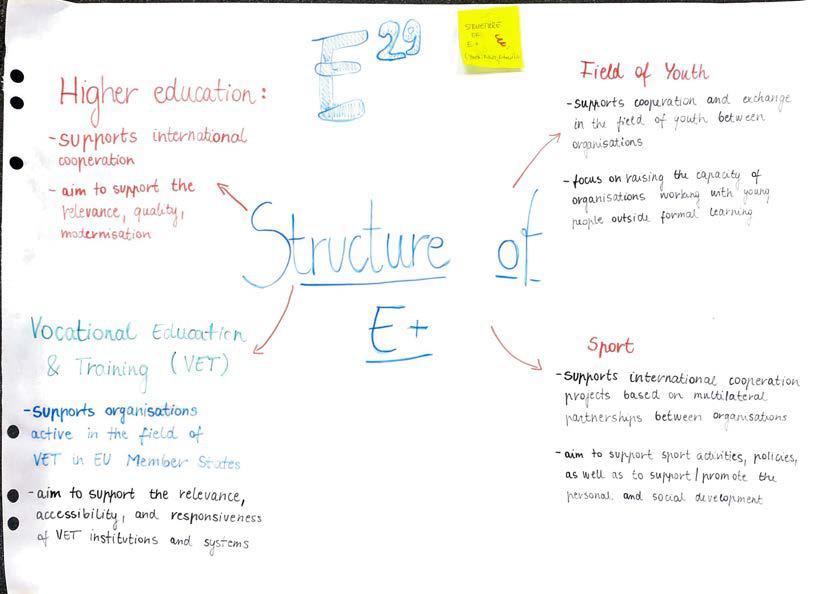 E29
STRUCTURE
OF
E+
Higher education:
-supports international
cooperation
- aim to support the
relevance, quality,
modernisation
Field of Youth
-supports cooperation and exchange
in the field of youth between
organisations
- focus on raising the capacity of
organisations working with young
people outside formal learning
Structure of
E+
Vocational Education
& Training (VET)
-supports organisations
active in the field of
VET in EU Member States
- aim to support the relevance,
accessibility, and responsiveness
of VET institutions and systems
Sport
-supports international cooperation
projects based on multilateral
partnerships between organisations
- aim to support sport activities, policies,
as well as to support/promote the
personal and social development